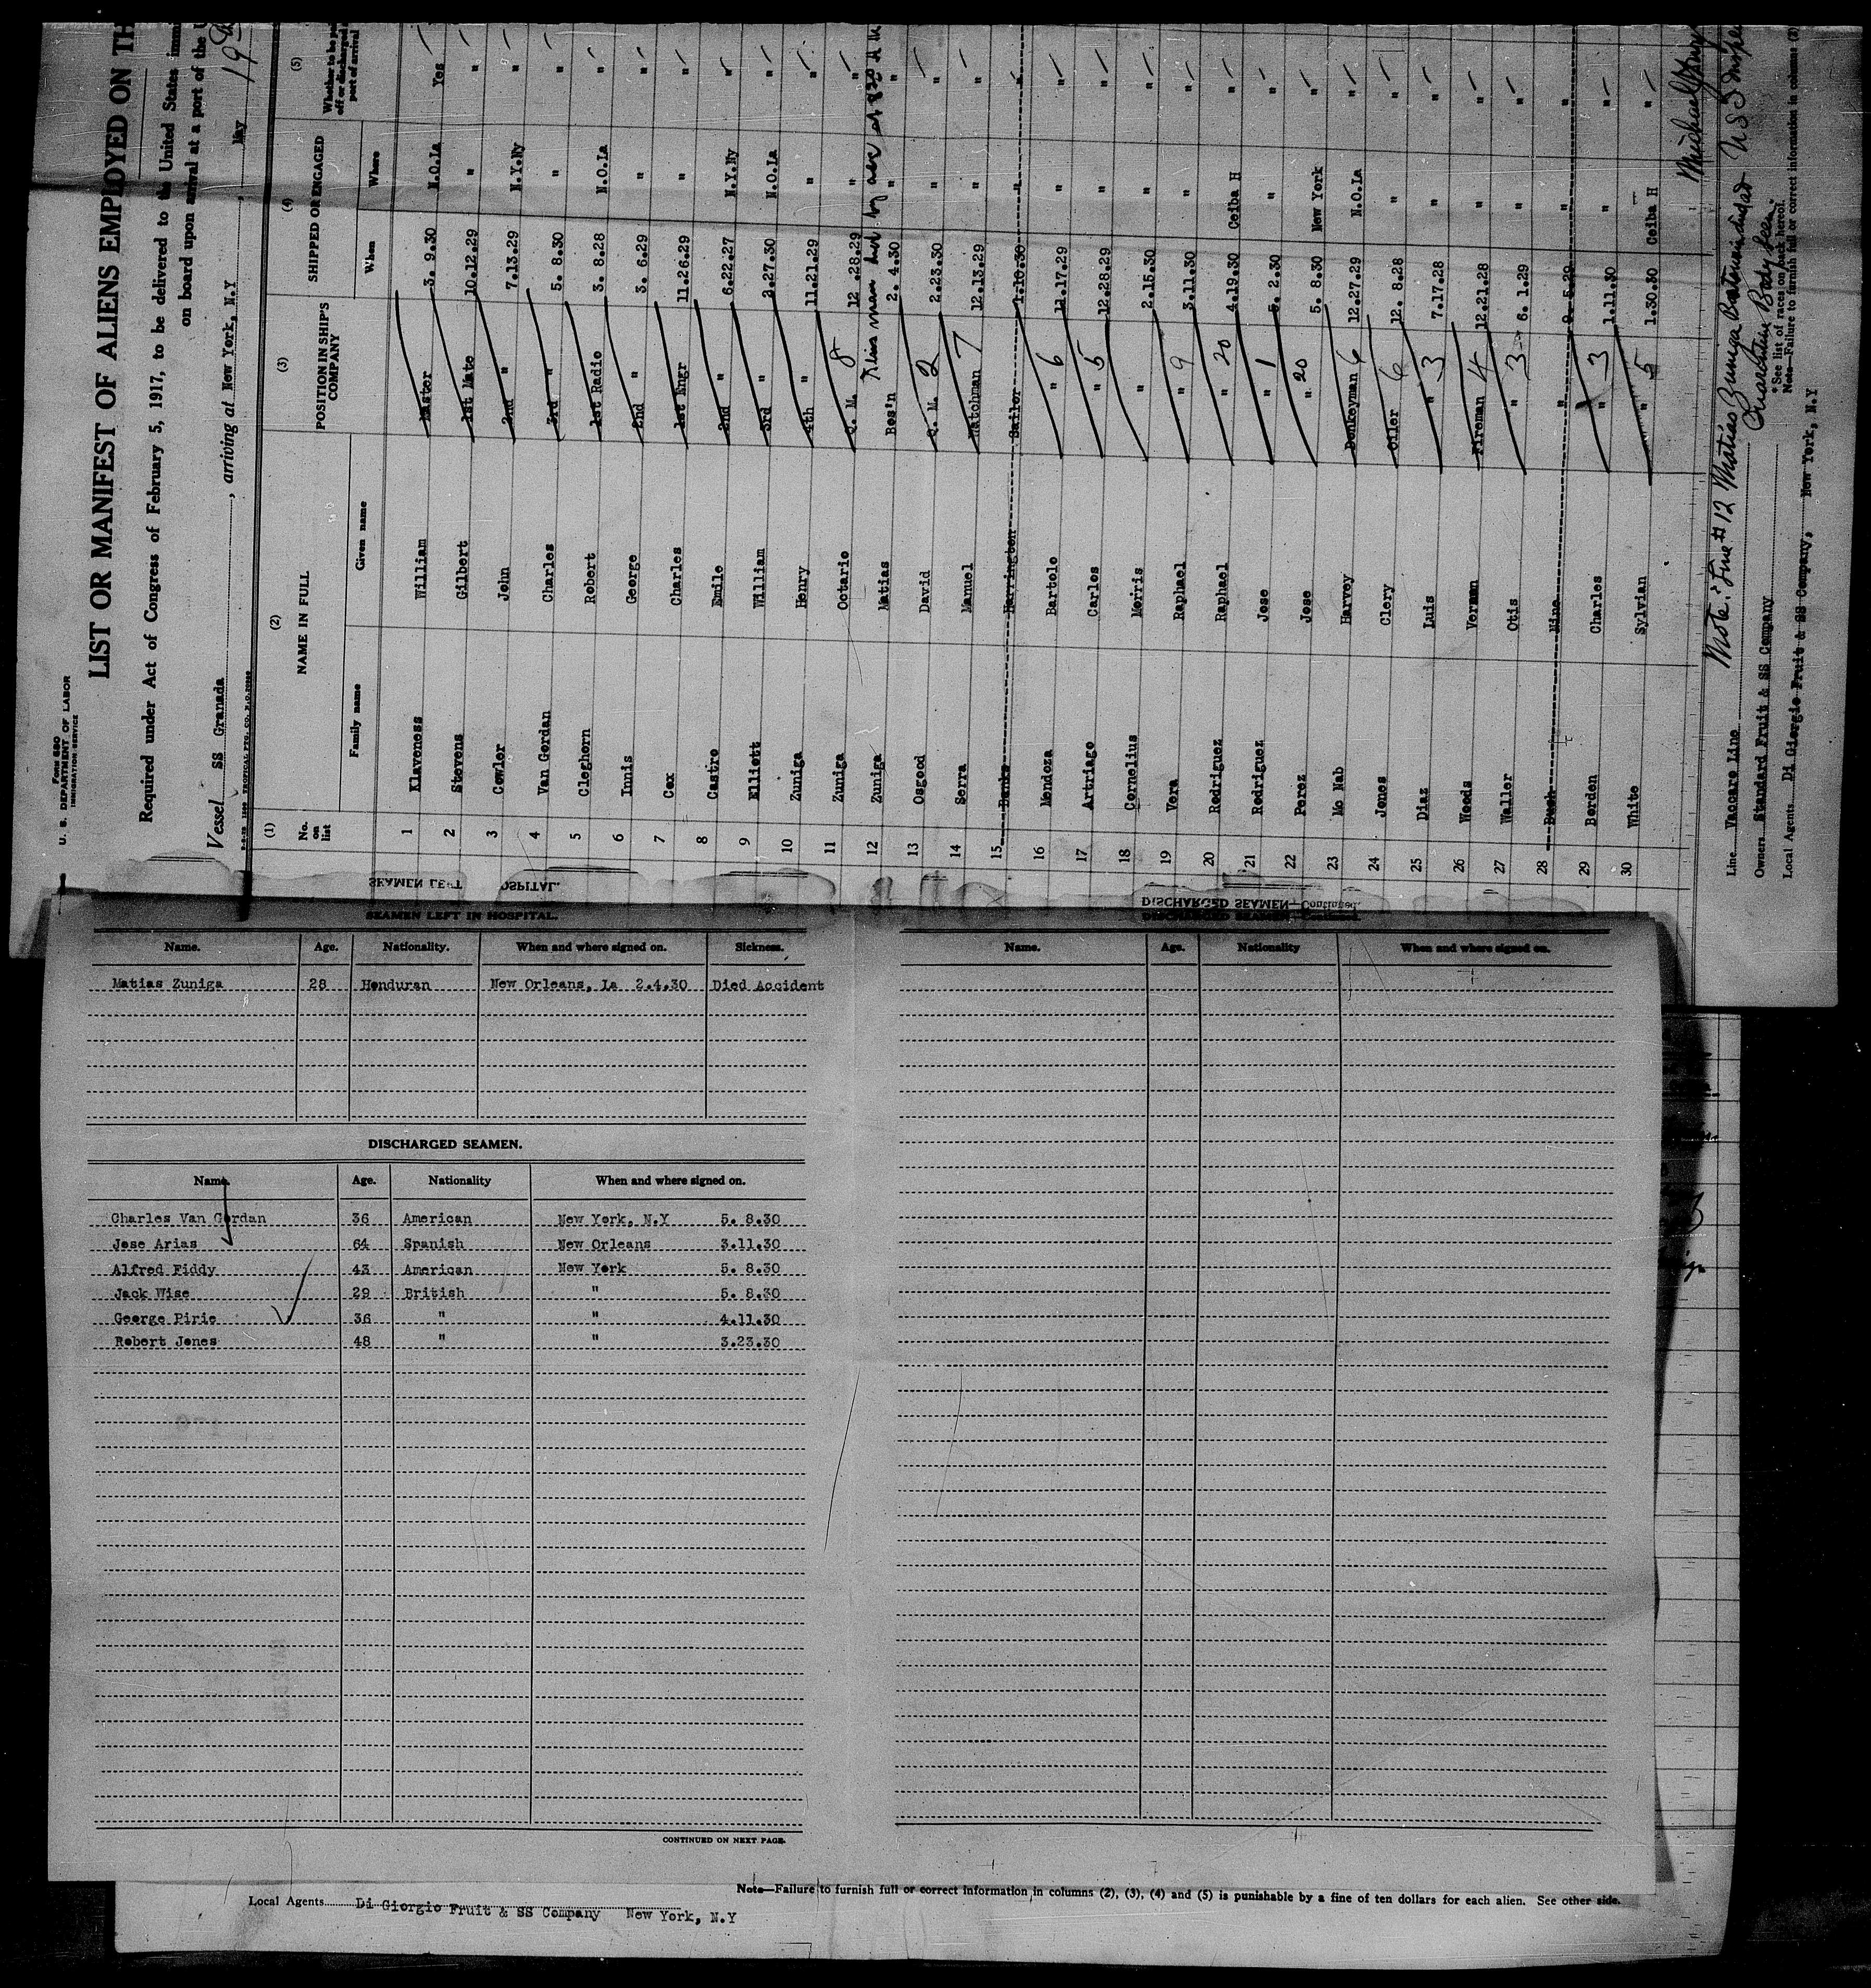 Form 680
U. S. DEPARTMENT OF LABOR
IMMIGRATION SERVICE
LIST OR MANIFEST OF ALIENS EMPLOYED ON TH
Required under Act of Congress of February 5, 1917, to be delivered to the United States immi
on board upon arrival at a port of the U
Vessel SS Granada, arriving at New York, N.Y, May 19th
(1) (2) (3) (4) (5)
No. on list NAME IN FULL POSITION IN SHIP'S COMPANY SHIPPED OR ENGAGED Whether to be pa off or discharged port of arrival
Family name Given name When Where
1 Klaveness William Master 3. 9.30 N.O.La Yes
2 Stevens Gilbert 1st Mate 10.12.29 " "
3 Cowler John 2nd " 7.13.29 N.Y.Ny "
4 Van Gordan Charles 3rd " 5. 8.30 " "
5 Cleghorn Robert 1st Radio 3. 8.28 N.O.La "
6 Innis George 2nd " 3. 6.29 " "
7 Cox Charles 1st Engr 11.26.29 " "
8 Castro Emile 2nd " 6.22.27 N.Y.Ny "
9 Elliott William 3rd " 3.27.30 N.O.La "
10 Zuniga Henry 4th " 11.21.29 " "
11 Zuniga Octario Q. M. 8 12 .28.29 " "
This man
12 Zuniga Matias Bos'n 2. 4.30 " "
13 Osgood David Q. M. 2 2.23.30 " "
14 Serra Manuel Watchman 7 12.13.29 " "
15 Banks Harrington Sailor 1.10.30 " "
16 Mendoza Bartolo " 6 11.17.29 " "
17 Artriago Carlos " 5 12.28.29 " "
18 Cornelius Morris " 2.15.30 " "
19 Vera Raphael " 9 3.11.30 " "
20 Rodriguez Raphael " 20 4.19.30 Ceiba H "
21 Rodriguez Jose " 1 5. 2.30 " "
22 Perez Jose " 20 5. 8.30 New York "
23 Mc Nab Harvey Donkeyman 6 12.27.29 N.O.La "
24 Jones Clery Oiler 6 12. 8.28 " "
25 Diaz Luis " 3 7.17.28 " "
26 Woods Vernan Fireman 4 12.21.28 " "
27 Waller Otis " 3 6. 1.29 " "
28 Bush Nine " 9. 5.29 " "
29 Borden Charles " 3 1.11.30 " "
30 White Sylvian " 5 1.30.30 Ceiba H "
Note: Line #12 Matias Zuniga
Quarantine Body seen.
Line Vaccaro Line
Owners Standard Fruit & SS Company
*See list of races on back hereof.
Local Agents Di Giorgio Fruit & SS Company, New York, N.Y
Note—Failure to furnish full or correct information in columns (2)
SEAMEN LEFT IN HOSPITAL.
Name. Age. Nationality. When and where signed on. Sickness.
Matias Zuniga 28 Honduran New Orleans, La 2.4.30 Died Accident
DISCHARGED SEAMEN.
Name Age. Nationality When and where signed on.
Charles Van Gordan 36 American New York, N.Y 5. 8.30
Jose Arias 64 Spanish New Orleans 3.11.30
Alfred Fiddy 43 American New York 5. 8.30
Jack Wise 29 British " 5. 8.30
George Pirie 36 " " 4.11.30
Robert Jones 48 " " 3.23.30
CONTINUED ON NEXT PAGE.
DISCHARGED SEAMEN—Continued.
Name. Age. Nationality When and where signed on.
Note—Failure to furnish full or correct information in columns (2), (3), (4) and (5) is punishable by a fine of ten dollars for each alien. See other side.
Local Agents Di Giorgio Fruit & SS Company New York, N.Y